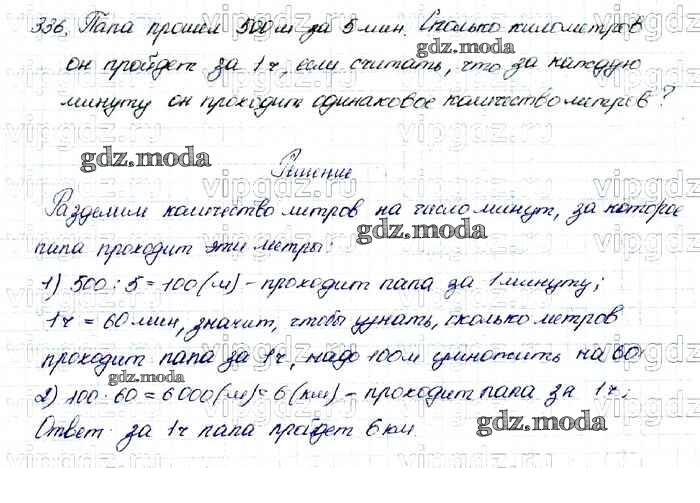 336. Папа прошел 500 м за 5 мин. Сколько километров
он пройдет за 1 ч, если считать, что за каждую
минуту он проходит одинаковое количество метров?
Решение
Разделим количество метров на число минут, за которое
папа проходит эти метры:
1) 500 : 5 = 100 (м) - проходит папа за 1 минуту;
1 ч = 60 мин, значит, чтобы узнать, сколько метров
проходит папа за 1 ч, надо 100 м умножить на 60:
2) 100 · 60 = 6000 (м) = 6 (км) - проходит папа за 1 ч;
Ответ: за 1 ч папа пройдет 6 км.
gdz.moda
gdz.moda
gdz.moda
gdz.moda
gdz.moda
vipgdz